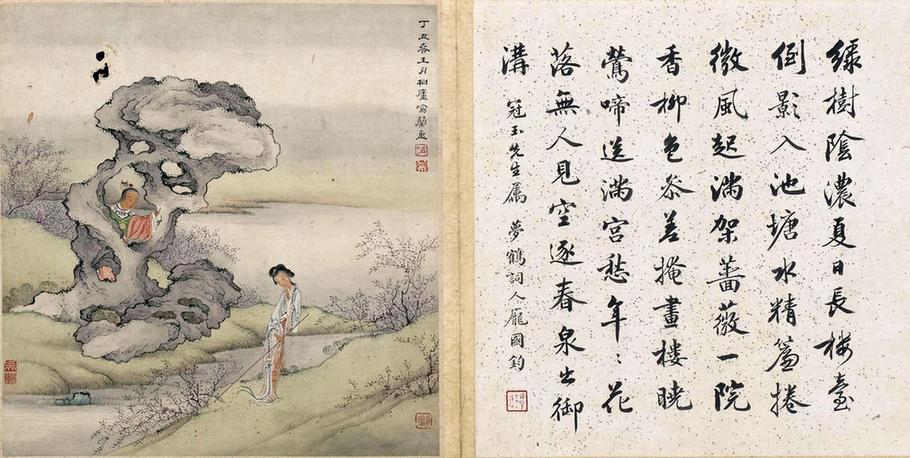 綠樹陰濃夏日長樓臺
倒影入池塘水精簾捲
微風起滿架薔薇一院
香柳色參差掩畫樓曉
鶯啼送滿宮愁年〻花
落無人見空逐春泉出御
溝
冠玉先生屬 夢鶴詞人龐國鈞
丁丑春王月桐廬